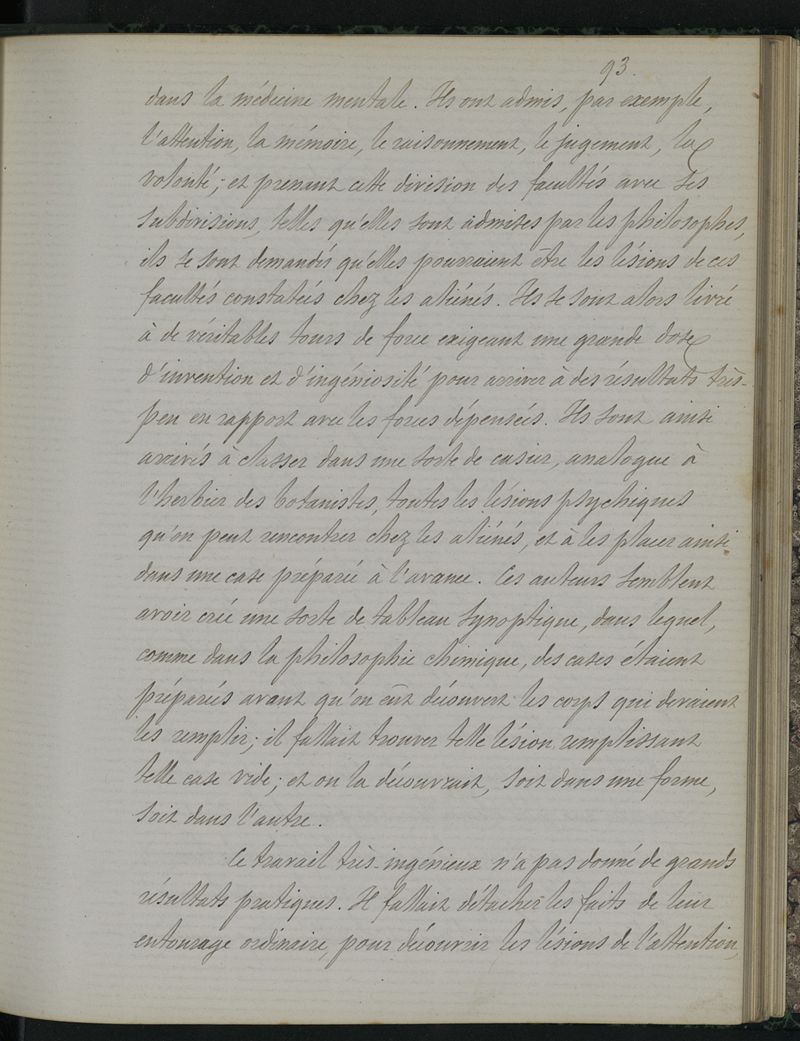 93.
dans la médecine mentale. Ils ont admis, par exemple,
l'attention, la mémoire, le raisonnement, le jugement, la
volonté; et prenant cette division des facultés avec ses
subdivisions, telles qu'elles sont admises par les philosophes,
ils se sont demandés qu'elles pourraient être les lésions de ces
facultés constatées chez les aliénés. Ils se sont alors livré
à de véritables tours de force exigeant une grande dose
d'invention et d'ingéniosité pour arriver à des résultats très-
peu en rapport avec les forces dépensées. Ils sont ainsi
arrivés à classer dans une sorte de casier, analogue à
l'herbier des botanistes, toutes les lésions psychiques
qu'on peut rencontrer chez les aliénés, et à les placer ainsi
dans une case préparée à l'avance. Ces auteurs semblent
avoir créé une sorte de tableau synoptique, dans lequel,
comme dans la philosophie chimique, des cases étaient
préparées avant qu'on eût découvert les corps qui devaient
les remplir; il fallait trouver telle lésion remplissant
telle case vide; et on la découvrait, soit dans une forme,
soit dans l'autre.
Ce travail très-ingénieux n'a pas donné de grands
résultats pratiques. Il fallait détacher les faits de leur
entourage ordinaire, pour découvrir les lésions de l'attention,